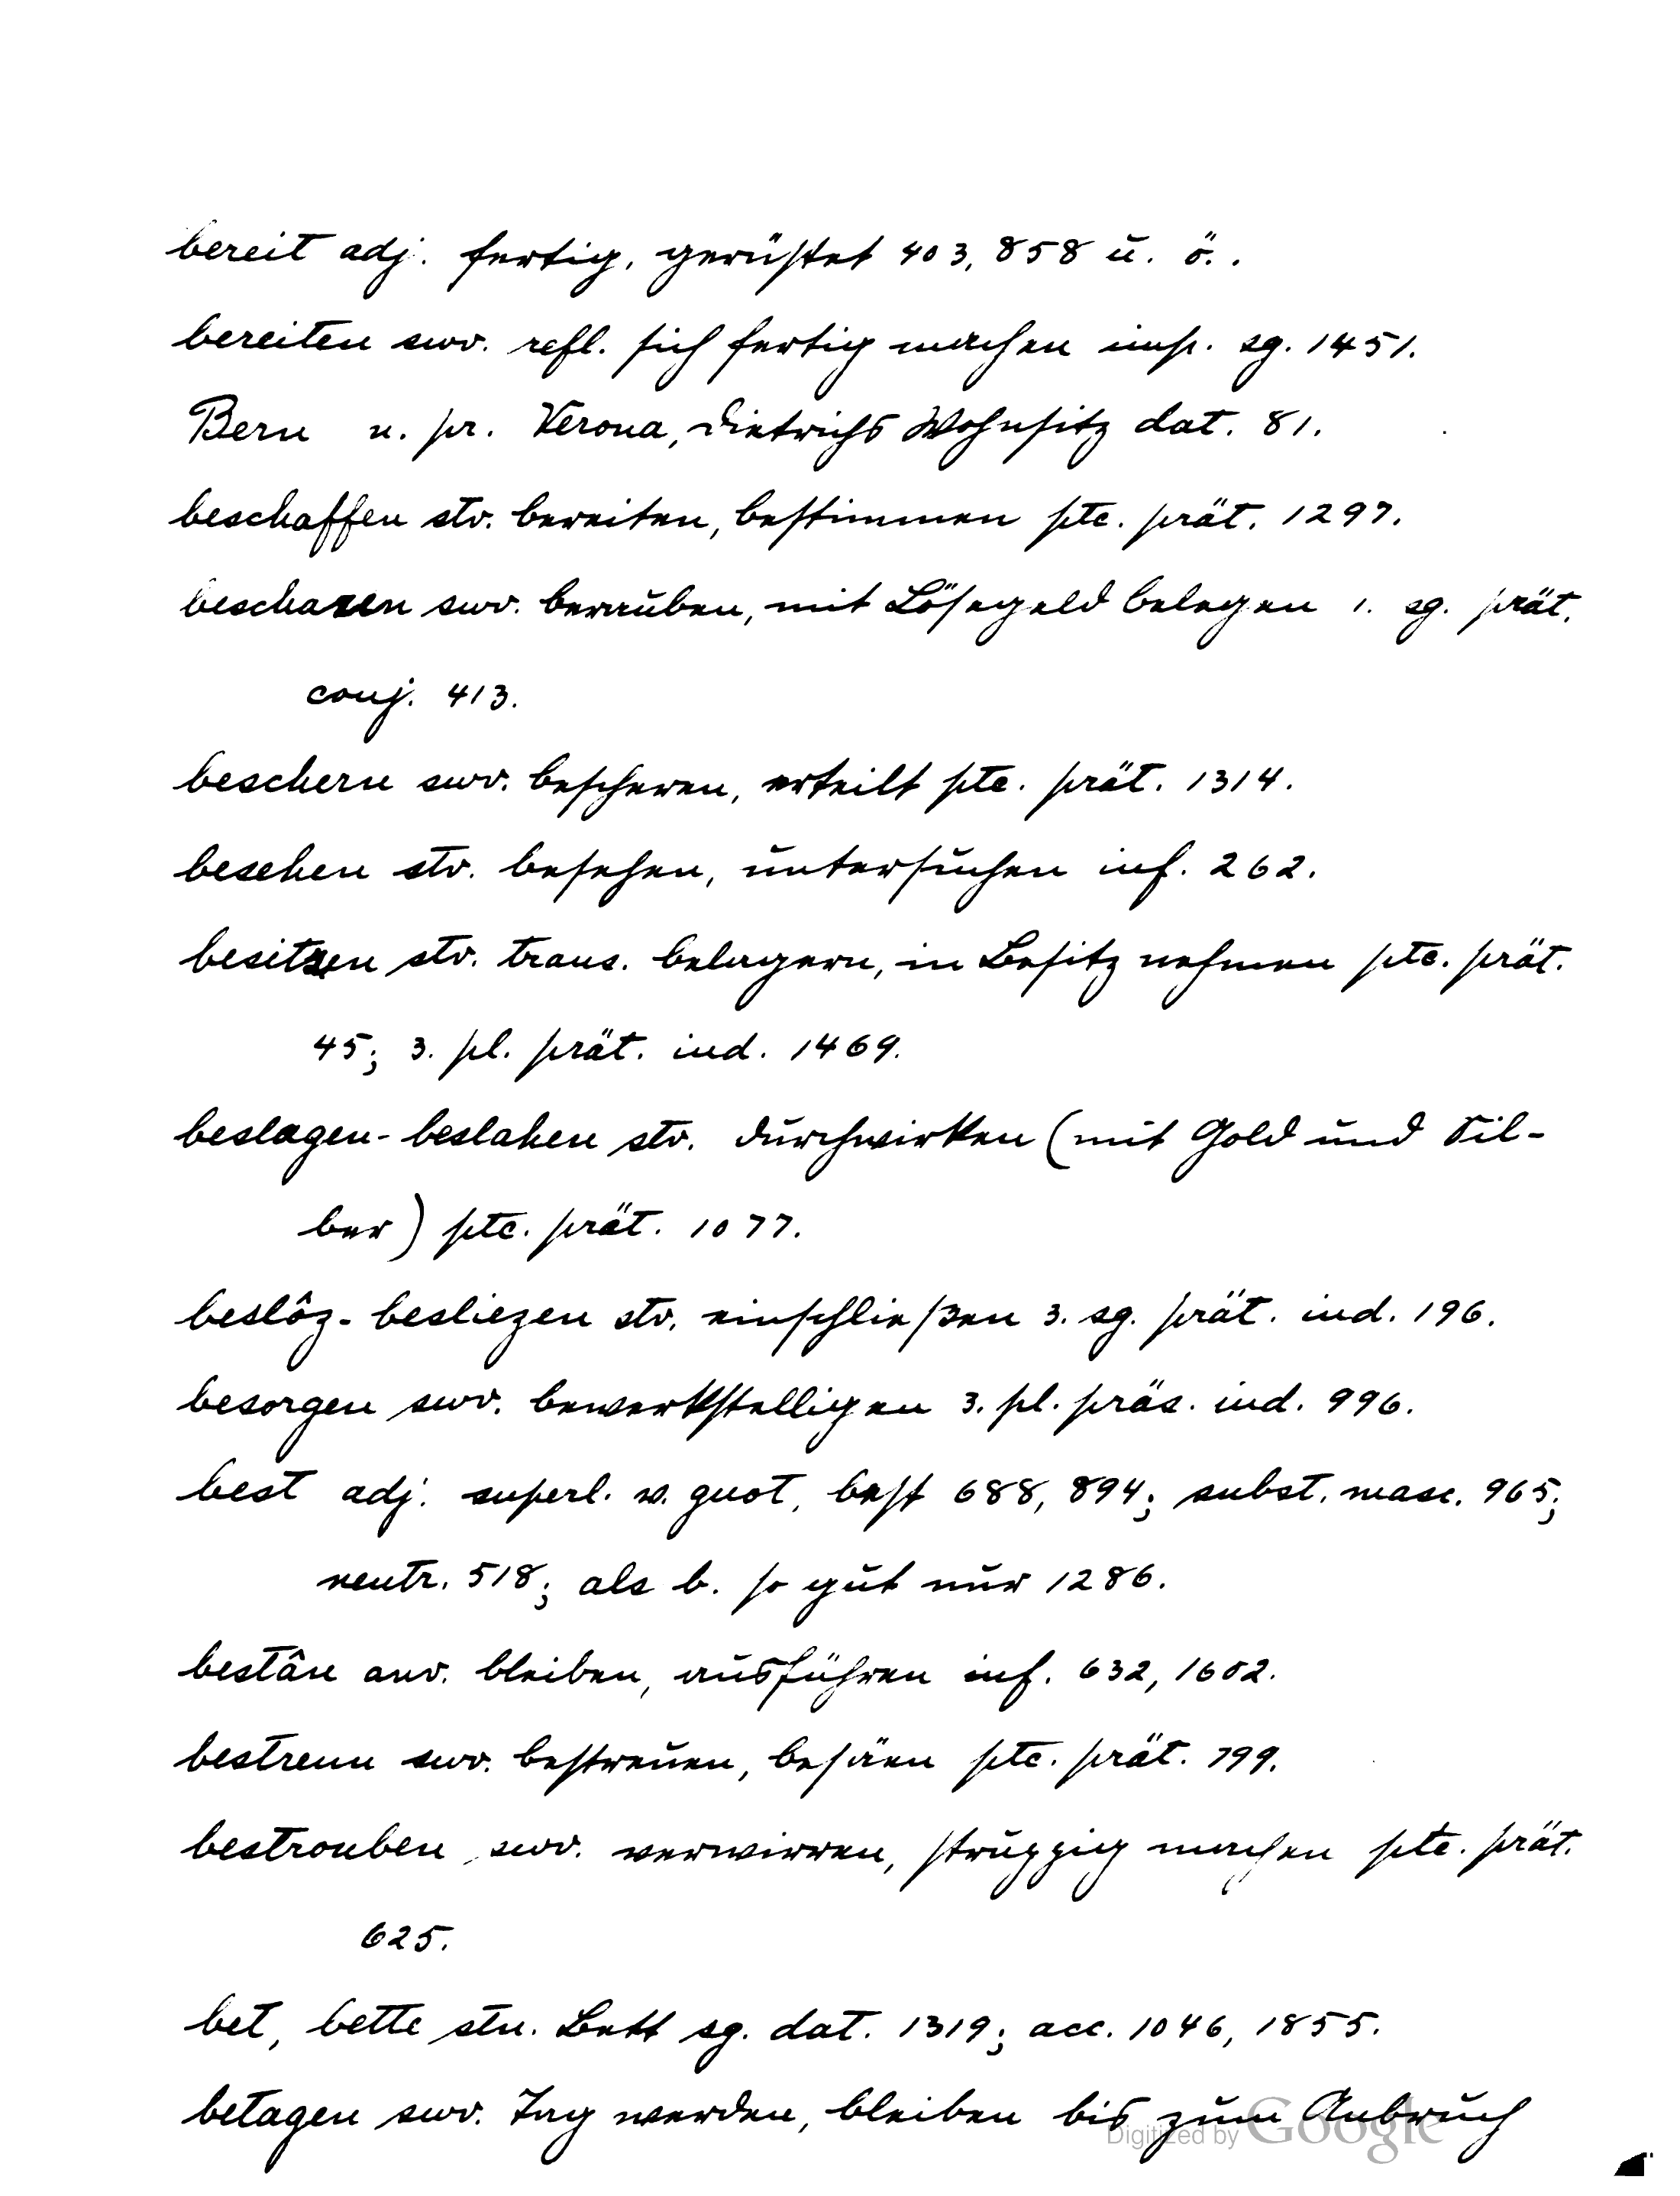 bereit adj. fertig, gerüstet 403, 858 u. ö..
bereiten swv. refl. sich fertig machen imp. sg. 1451.
Bern n. pr. Verona, Dietrichs Wohnsitz dat. 81.
beschaffen stv. bereiten, bestimmen ptc. prät. 1297.
beschazen swv. berauben, mit Lösegeld belegen 1. sg. prät.
conj. 413.
beschern swv. bescheren, erteilt ptc. prät. 1314.
besehen stv. besehen, untersuchen inf. 262.
besitzen stv. trans. belagern, in Besitz nehmen ptc. prät.
45; 3. pl. prät. ind. 1469.
beslagen-beslahen stv. durchwirken (mit Gold und Sil-
ber) ptc. prät. 1077.
beslôz-besliezen stv. einschließen 3. sg. prät. ind. 196.
besorgen swv. bewerkstelligen 3. pl. präs. ind. 996.
best adj. superl. v. guot, best 688, 894; subst. masc. 965;
neutr. 518; als b. so gut nur 1286.
bestân anv. bleiben, ausführen inf. 632, 1602.
bestreun swv. bestreuen, besäen ptc. prät. 799.
bestrouben swv. verwirren, struppig machen ptc. prät.
625.
bet, bette stn. Bett sg. dat. 1319; acc. 1046, 1855.
betagen swv. Tag werden, bleiben bis zum Anbruch
Digitized by Google